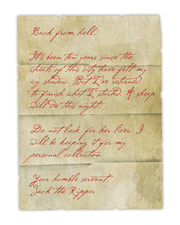 Back from hell.
It's been ten years since the
streets of this city have felt my
icy shadow. But I've returned
to finish what I started. A sheep
will die this night.
Do not look for her liver. I
will be keeping it for my
personal collection.
Your humble servant
Jack the Ripper